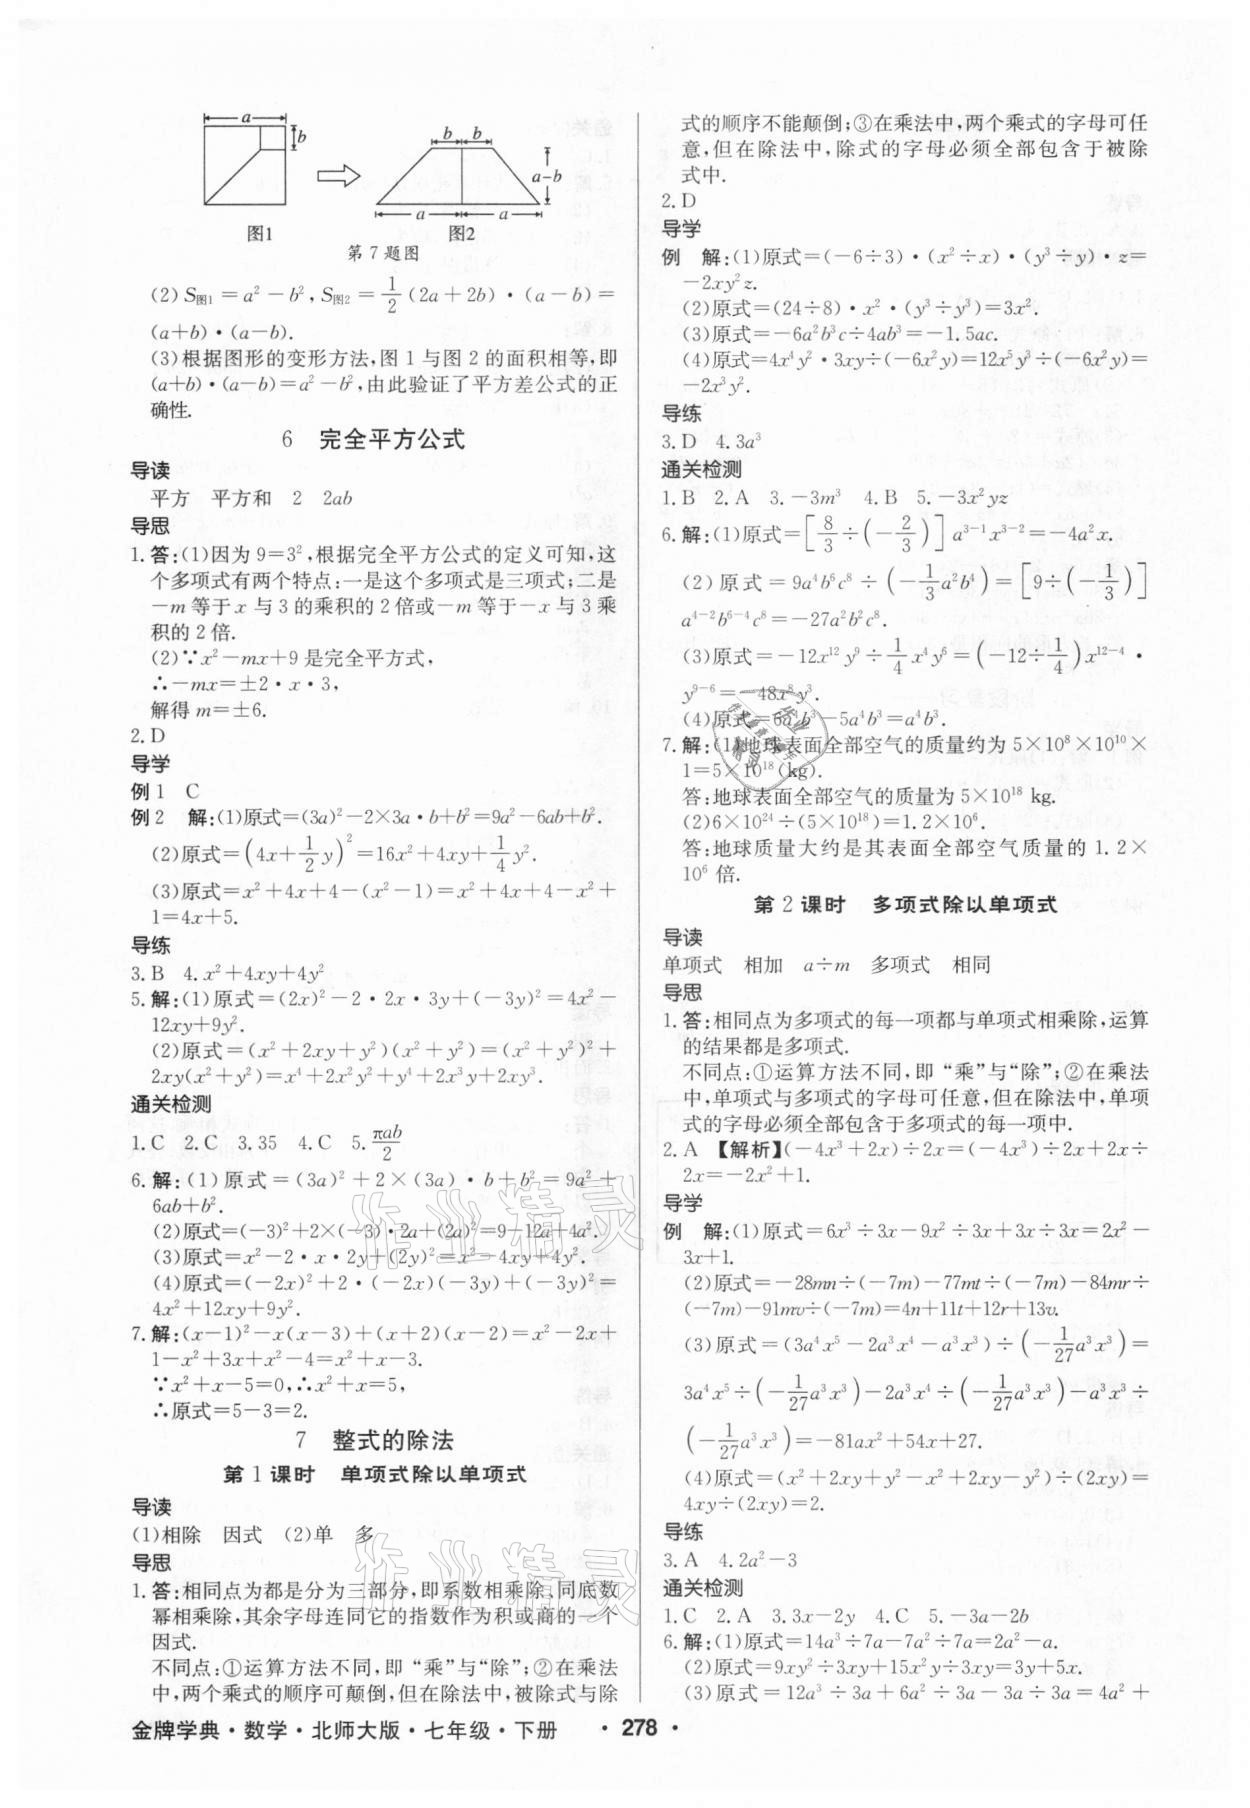 a
b
图1
b b
a-b
a a
图2
第7题图
(2)S图1=a²-b²,S图2=1/2(2a+2b)·(a-b)=
(a+b)·(a-b).
(3)根据图形的变形方法,图1与图2的面积相等,即
(a+b)·(a-b)=a²-b²,由此验证了平方差公式的正
确性.
6 完全平方公式
导读
平方 平方和 2 2ab
导思
1.答:(1)因为9=3²,根据完全平方公式的定义可知,这
个多项式有两个特点:一是这个多项式是三项式;二是
-m等于x与3的乘积的2倍或-m等于-x与3乘
积的2倍.
(2)∵x²-mx+9是完全平方式,
∴-mx=±2·x·3,
解得m=±6.
2.D
导学
例1 C
例2 解:(1)原式=(3a)²-2×3a·b+b²=9a²-6ab+b².
(2)原式=(4x+1/2y)²=16x²+4xy+1/4y².
(3)原式=x²+4x+4-(x²-1)=x²+4x+4-x²+
1=4x+5.
导练
3.B 4.x²+4xy+4y²
5.解:(1)原式=(2x)²-2·2x·3y+(-3y)²=4x²-
12xy+9y².
(2)原式=(x²+2xy+y²)(x²+y²)=(x²+y²)²+
2xy(x²+y²)=x⁴+2x²y²+y⁴+2x³y+2xy³.
通关检测
1.C 2.C 3.35 4.C 5.πab/2
6.解:(1)原式=(3a)²+2×(3a)·b+b²=9a²+
6ab+b².
(2)原式=(-3)²+2×(-3)·2a+(2a)²=9-12a+4a².
(3)原式=x²-2·x·2y+(2y)²=x²-4xy+4y².
(4)原式=(-2x)²+2·(-2x)(-3y)+(-3y)²=
4x²+12xy+9y².
7.解:(x-1)²-x(x-3)+(x+2)(x-2)=x²-2x+
1-x²+3x+x²-4=x²+x-3.
∵x²+x-5=0,∴x²+x=5,
∴原式=5-3=2.
7 整式的除法
第1课时 单项式除以单项式
导读
(1)相除 因式 (2)单 多
导思
1.答:相同点为都是分为三部分,即系数相乘除,同底数
幂相乘除,其余字母连同它的指数作为积或商的一个
因式.
不同点:①运算方法不同,即“乘”与“除”;②在乘法
中,两个乘式的顺序可颠倒,但在除法中,被除式与除
式的顺序不能颠倒;③在乘法中,两个乘式的字母可任
意,但在除法中,除式的字母必须全部包含于被除
式中.
2.D
导学
例 解:(1)原式=(-6÷3)·(x²÷x)·(y³÷y)·z=
-2xy²z.
(2)原式=(24÷8)·x²·(y³÷y³)=3x².
(3)原式=-6a²b³c÷4ab³=-1.5ac.
(4)原式=4x⁴y²·3xy÷(-6x²y)=12x⁵y³÷(-6x²y)=
-2x³y².
导练
3.D 4.3a³
通关检测
1.B 2.A 3.-3m³ 4.B 5.-3x²yz
6.解:(1)原式=[8/3÷(-2/3)]a³⁻¹x³⁻²=-4a²x.
(2)原式=9a⁴b⁶c⁸÷(-1/3a²b⁴)=[9÷(-1/3)]
a⁴⁻²b⁶⁻⁴c⁸=-27a²b²c⁸.
(3)原式=-12x¹²y⁹÷1/4x⁴y⁶=(-12÷1/4)x¹²⁻⁴·
y⁹⁻⁶=-48x⁸y³.
(4)原式=6a⁴b³-5a⁴b³=a⁴b³.
7.解:(1)地球表面全部空气的质量约为5×10⁸×10¹⁰×
1=5×10¹⁸(kg).
答:地球表面全部空气的质量为5×10¹⁸ kg.
(2)6×10²⁴÷(5×10¹⁸)=1.2×10⁶.
答:地球质量大约是其表面全部空气质量的1.2×
10⁶倍.
第2课时 多项式除以单项式
导读
单项式 相加 a÷m 多项式 相同
导思
1.答:相同点为多项式的每一项都与单项式相乘除,运算
的结果都是多项式.
不同点:①运算方法不同,即“乘”与“除”;②在乘法
中,单项式与多项式的字母可任意,但在除法中,单项
式的字母必须全部包含于多项式的每一项中.
2.A 【解析】(-4x³+2x)÷2x=(-4x³)÷2x+2x÷
2x=-2x²+1.
导学
例 解:(1)原式=6x³÷3x-9x²÷3x+3x÷3x=2x²-
3x+1.
(2)原式=-28mn÷(-7m)-77mt÷(-7m)-84mr÷
(-7m)-91mv÷(-7m)=4n+11t+12r+13v.
(3)原式=(3a⁴x⁵-2a³x⁴-a³x³)÷(-1/27a³x³)=
3a⁴x⁵÷(-1/27a³x³)-2a³x⁴÷(-1/27a³x³)-a³x³÷
(-1/27a³x³)=-81ax²+54x+27.
(4)原式=(x²+2xy+y²-x²+2xy-y²)÷(2xy)=
4xy÷(2xy)=2.
导练
3.A 4.2a²-3
通关检测
1.C 2.A 3.3x-2y 4.C 5.-3a-2b
6.解:(1)原式=14a³÷7a-7a²÷7a=2a²-a.
(2)原式=9xy²÷3xy+15x²y÷3xy=3y+5x.
(3)原式=12a³÷3a+6a²÷3a-3a÷3a=4a²+
金牌学典·数学·北师大版·七年级·下册 ·278·
作业精灵
作业精灵